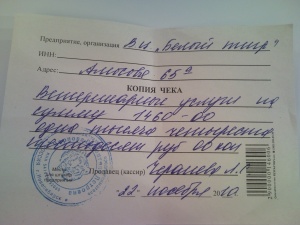 Предприятие, организация Ви „Белый тигр"
ИНН:
Адрес: Амосова 65а
КОПИЯ ЧЕКА
Ветеринарные услуги на
сумму 1460-00
одна тысяча четыреста
шестьдесят руб 00 коп
Продавец (кассир)
22 ноября 20